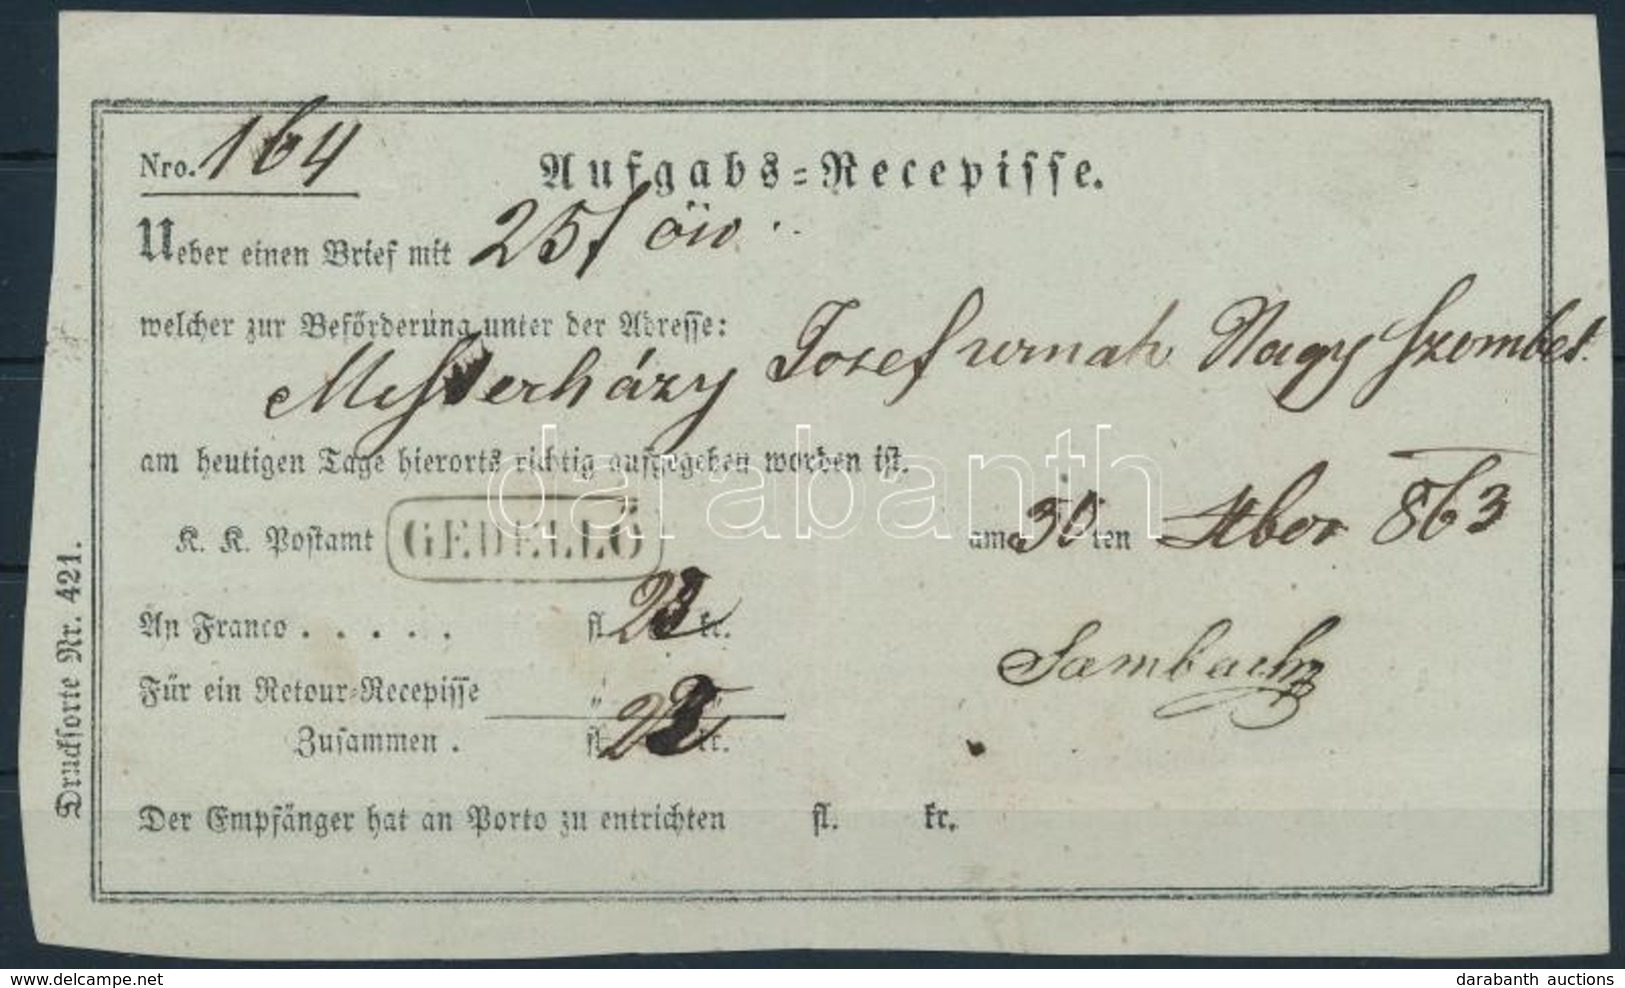 Nro. 164
Aufgabs=Recepisse.
Ueber einen Brief mit 25f öw
welcher zur Beförderung unter der Adresse:
Mesterházy Josef urnak Nagy Szombat
am heutigen Tage hierorts richtig aufgegeben worden ist.
K. K. Postamt GEDELLÖ am 30 ten 863
An Franco . . . . . fl. 23 kr.
Für ein Retour-Recepisse " "
Zusammen . fl. 23 kr.
Der Empfänger hat an Porto zu entrichten fl. kr.
Drucksorte Nr. 421.
darabanth
delcampe.net
darabanth auctions